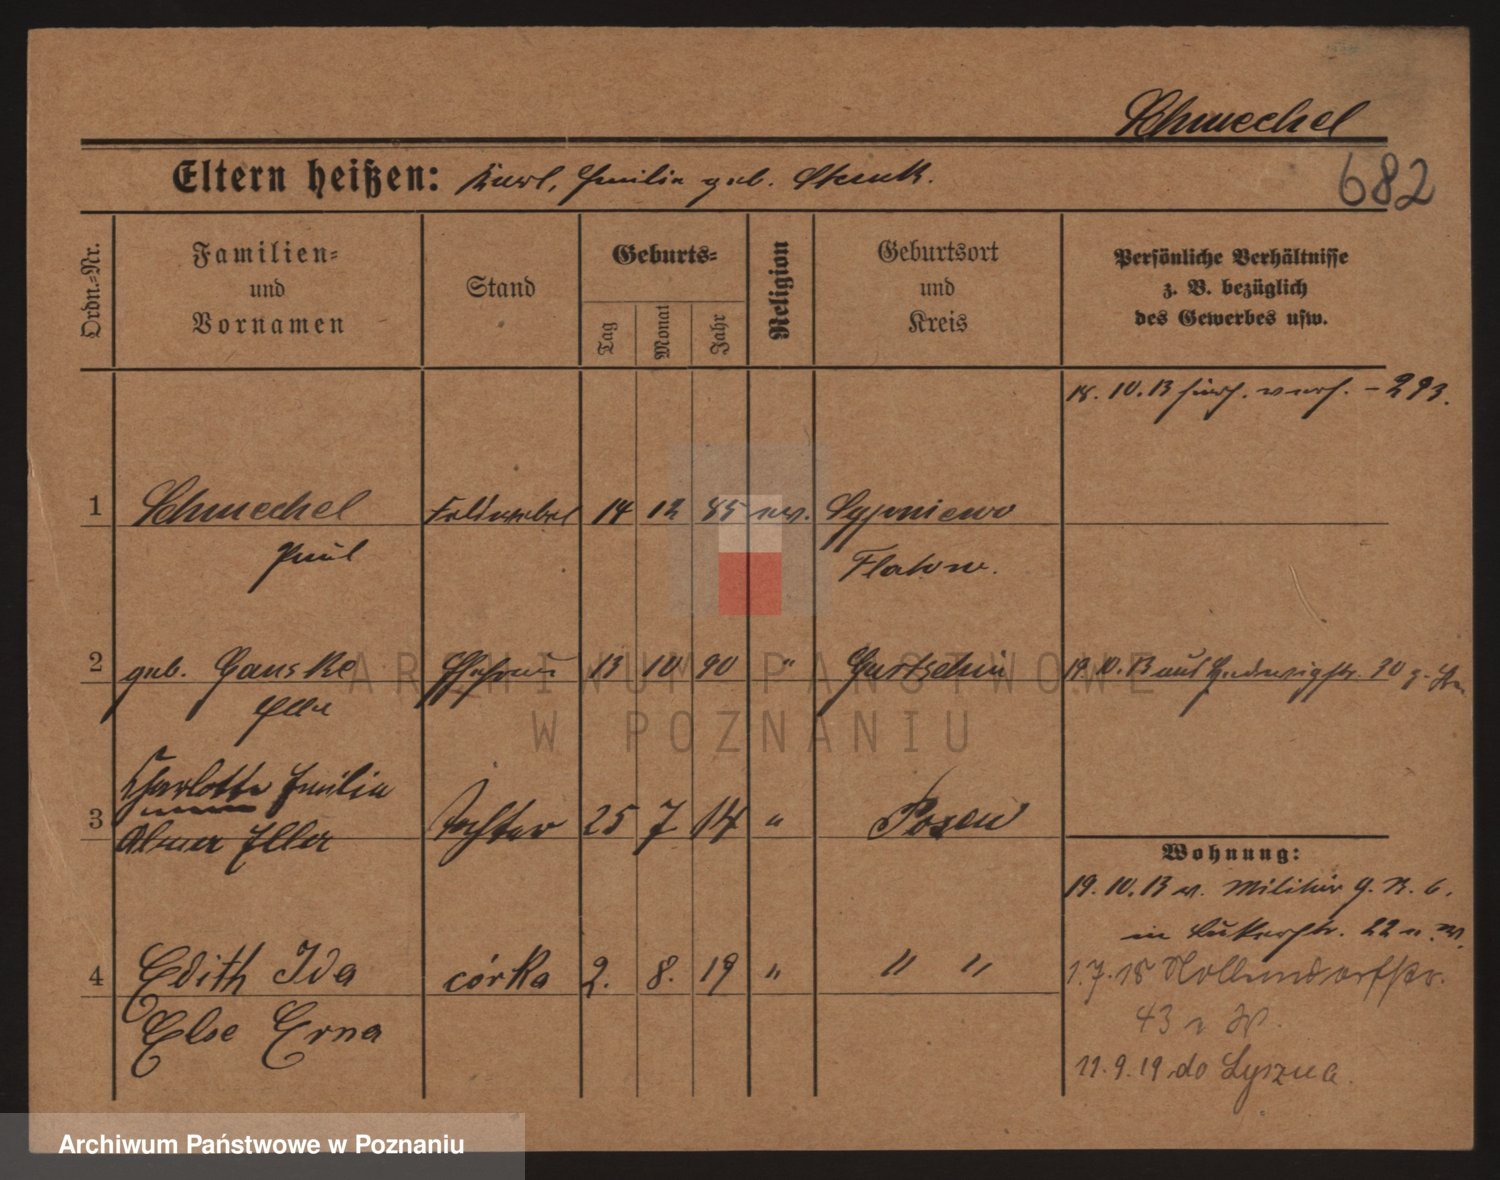 Schmechel
Eltern heißen: Karl, Emilie geb.
682
Ordn.-Nr.
Familien-
und
Vornamen
Stand
Geburts-
Tag
Monat
Jahr
Religion
Geburtsort
und
Kreis
Persönliche Verhältnisse
z. B. bezüglich
des Gewerbes usw.
18. 10. 13 - 293.
1 Schmechel Feldwebel 14 12 85 ev. Sypniewo
Paul Flatow.
2 geb. Ganske Ehefrau 13 10 90 " Gurtschin 19. 10. 13 aus Hedwigstr. 30
Ella
Charlotte Emilie
3 Alma Ella Tochter 25 7 14 " Posen
Wohnung:
19. 10. 13 v. Militär G. R. 6.
in Bukerstr. 22 n. W.
4 Edith Ida córka 2. 8. 19 " " " 1. 7. 18 Hollmandorfstr.
Else Erna 43
11. 9. 19 do Lyszna
ARCHIWUM PAŃSTWOWE
W POZNANIU
Archiwum Państwowe w Poznaniu